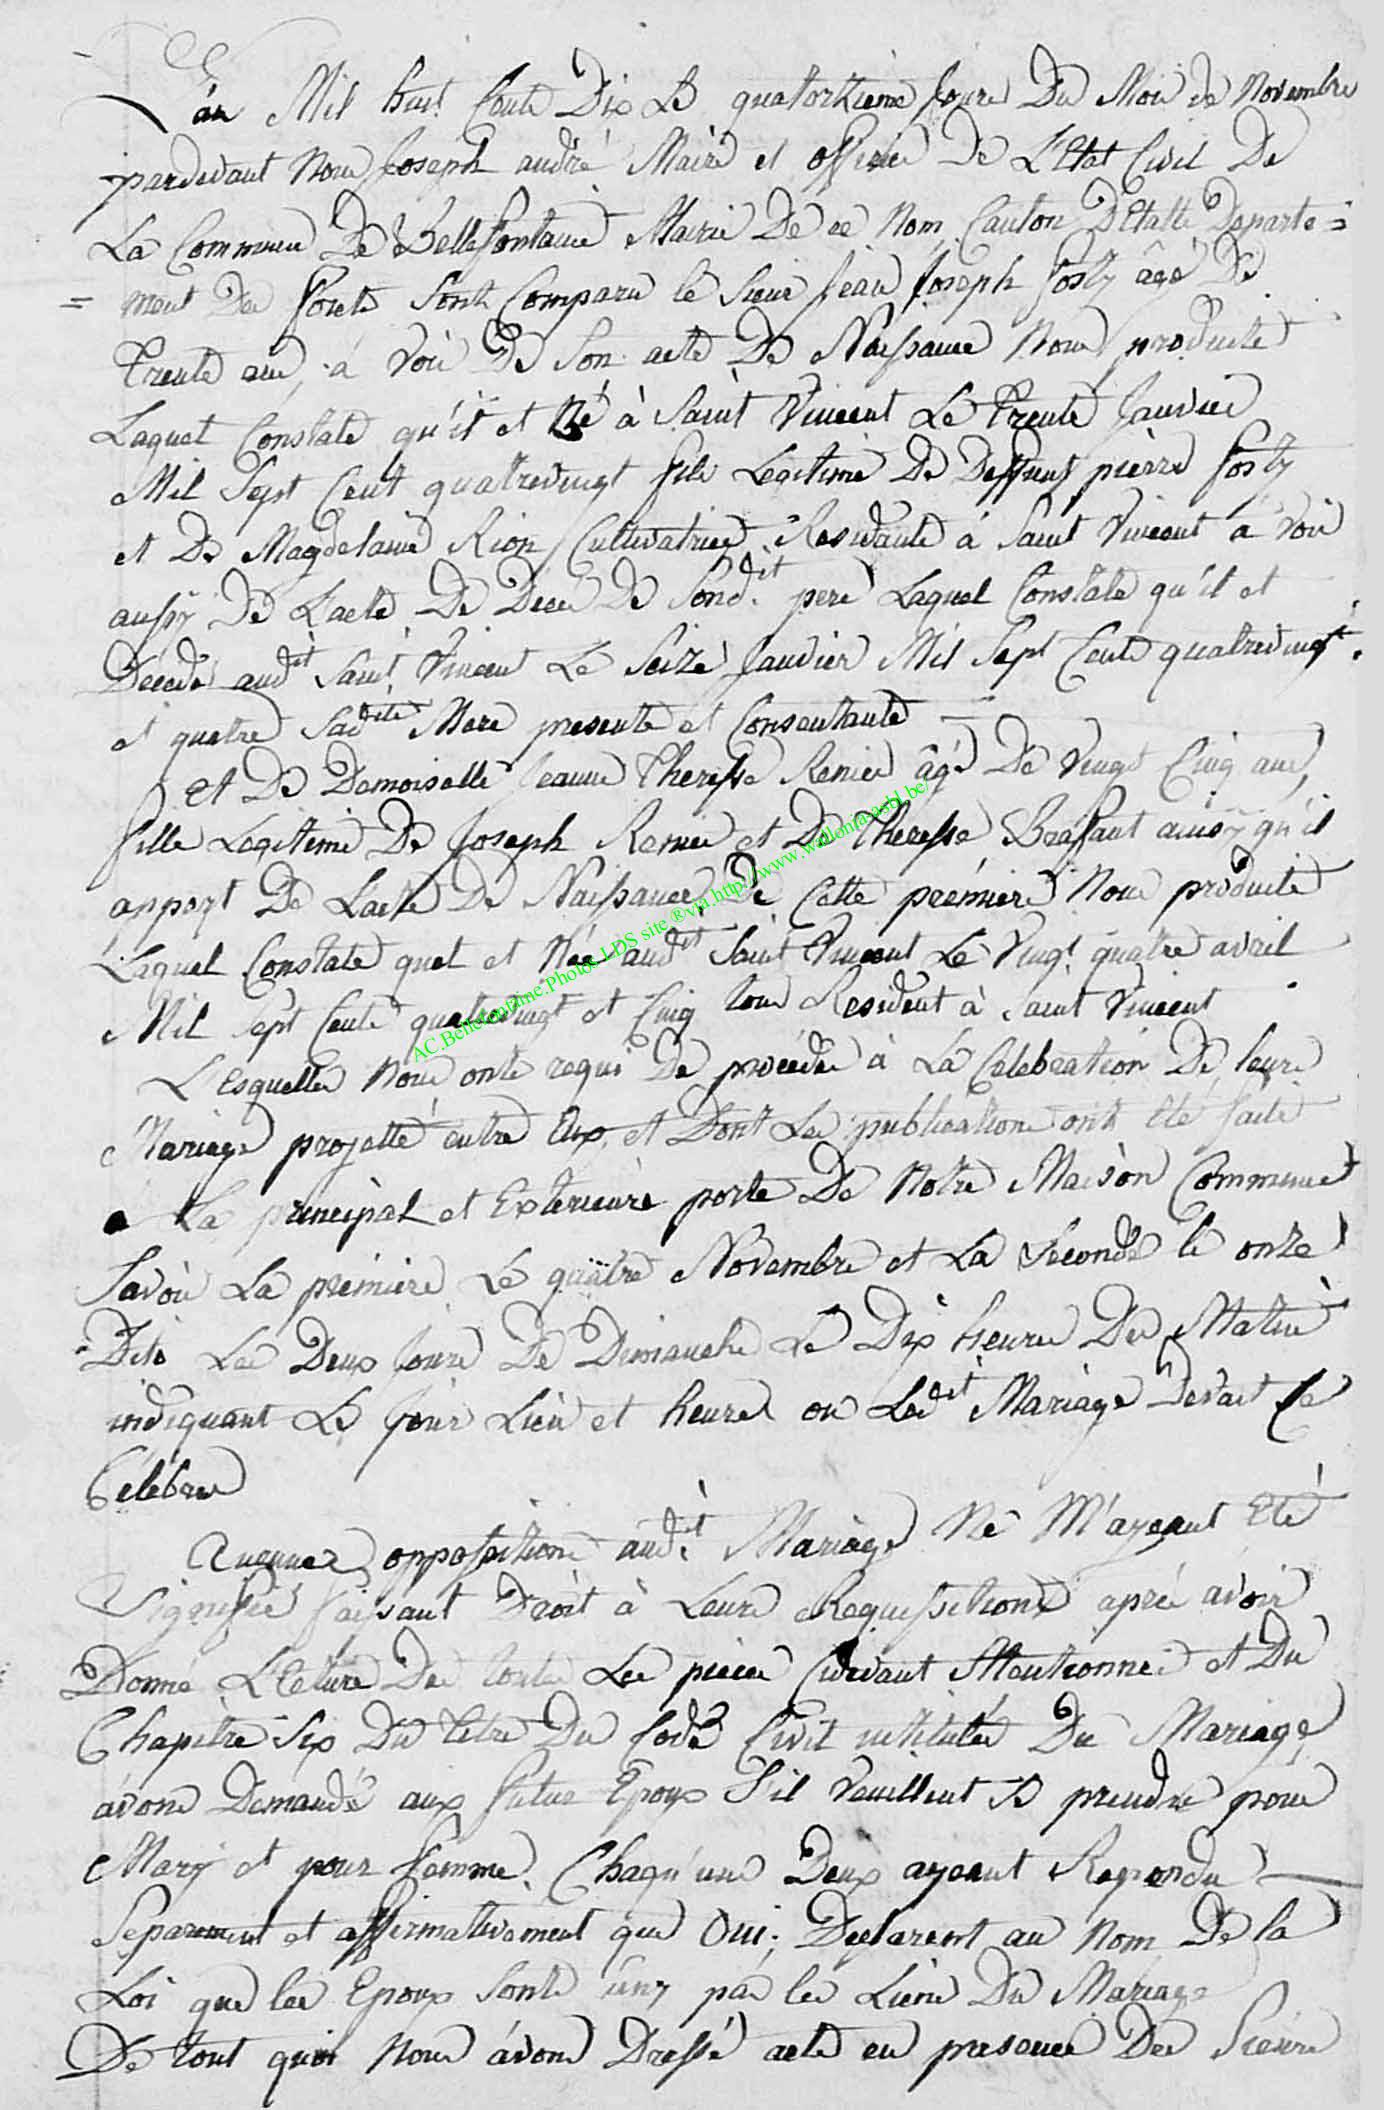 L'an Mil huit Cents Dix Le quatorzieme Jours Du Moi de Novembre
pardevant Nous Joseph andré Maire et officier De L'Etat Civil De
La Commune De Bellefontaine Mairie De ce Nom Canton D'Etalle Departe=
=ment Des Forets Sont Comparu le Sieur Jean Joseph Fosty âgé De
Trente ans, à voir De Son acte De Naissance Nous produite
Laquel Constate qu'il et Né à Saint Vincent Le Trente Janvier
Mil Sept Cent quatrevingt fils Legitime De Deffunt pierre Fosty
et De Magdelaine Rion Cultivatrice Residante à Saint Vincent a voir
aussy De L'acte De Deces De Sondit pere Laquel Constate qu'il et
Décédé audit Saint Vincent Le Seize Janvier Mil Sept Cents quatrevingt
et quatre Sadite Mere presente et Consentante
Et De Demoiselle Jeanne Theresse Renier âgé De Vingt Cinq ans,
fille Legitime De Joseph Renier et De Theresse Brassant ainsy qu'il
appert De Lacte De Naissance De Cette premiere Nous produite
Laquel Constate quel et Née audit Saint Vincent Le Vingt quatre avril
Mil Sept Cents quatrevingt et Cinq tous Resident à Saint Vincent
L'Esquelles Nous onts requi De procéder à La Celebration De leurs
Mariage projetté entre Eux et Dont Les publications ont été faite
a La principal et Exterieure porte De Notre Maison Commune
Savoir La premiere Le quatre Novembre et La Seconde le onze
Dito Les Deux Jours De Dimanche Le Dix heures Du Matin
indiquant Le Jour Lieu et heure ou Ledit Mariage Devait Ce
Celebrer
Aucunes oppositions audit Mariage Ne M'ayeant Eté
Signifié faissant Droit à Leurs Requissitions aprés avoir
Donné L'Eture De toutes Les pieces Cidevant Mentionnés et Du
Chapitre Six Du titre Du Code Civil intitulés Du Mariage
avons Demandé aux Futur Epoux S'il veuillent Se prendre pour
Mary et pour femme. Chaqu'un Deux ayeant Repondu
Separement et affirmativement que Oui; Declarent au Nom De la
Loi que les Epoux Sonts uny par les Liens Du Mariage
De tout quoi Nous avons Dressé acte en presence Des Sieurs
AC.Bellefontaine.Photos LDS site ®via.http://www.wallonia-asbl.be/